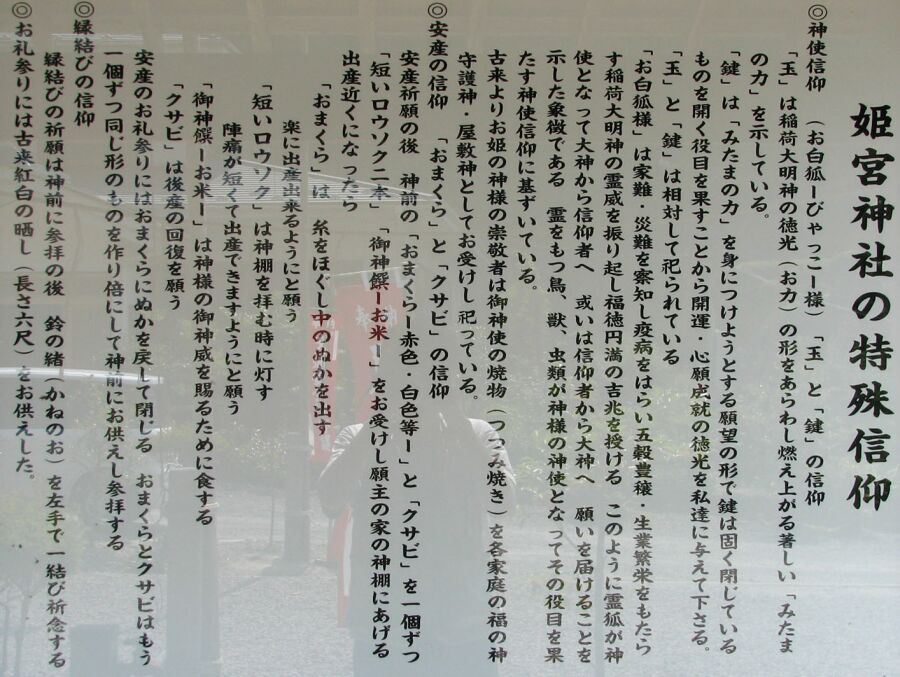 姫宮神社の特殊信仰
◎神使信仰　（お白狐ーびゃっこー様）「玉」と「鍵」の信仰
「玉」は稲荷大明神の徳光（お力）の形をあらわし燃え上がる著しい「みたま
の力」を示している。
「鍵」は「みたまの力」を身につけようとする願望の形で鍵は固く閉じている
ものを開く役目を果すことから開運・心願成就の徳光を私達に与えて下さる。
「玉」と「鍵」は相対して祀られている
「お白狐様」は家難・災難を察知し疫病をはらい五穀豊穣・生業繁栄をもたら
す稲荷大明神の霊威を振り起し福徳円満の吉兆を授ける　このように霊狐が神
使となって大神から信仰者へ　或いは信仰者から大神へ　願いを届けることを
示した象徴である　霊をもつ鳥、獣、虫類が神様の神使となってその役目を果
たす神使信仰に基ずいている。
古来よりお姫の神様の崇敬者は御神使の焼物（つつみ焼き）を各家庭の福の神
守護神・屋敷神としてお受けし祀っている。
◎安産の信仰　「おまくら」と「クサビ」の信仰
安産祈願の後　神前の「おまくらー赤色・白色等ー」と「クサビ」を一個ずつ
「短いロウソク二本」　「御神饌ーお米ー」をお受けし願主の家の神棚にあげる
出産近くになったら
「おまくら」は　糸をほぐし中のぬかを出す
楽に出産出来るようにと願う
「短いロウソク」は神棚を拝む時に灯す
陣痛が短くて出産できますようにと願う
「御神饌ーお米ー」は神様の御神威を賜るために食する
「クサビ」は後産の回復を願う
安産のお礼参りにはおまくらにぬかを戻して閉じる　おまくらとクサビはもう
一個ずつ同じ形のものを作り倍にして神前にお供えし参拝する
◎縁結びの信仰
縁結びの祈願は神前に参拝の後　鈴の緒（かねのお）を左手で一結び祈念する
◎お礼参りには古来紅白の晒し（長さ六尺）をお供えした。